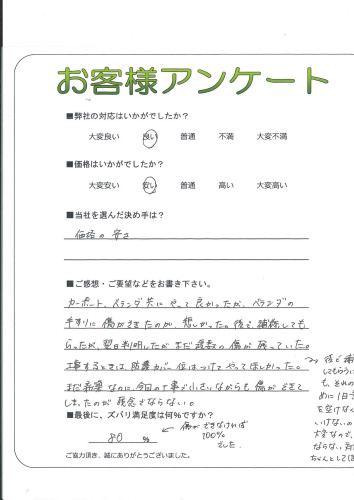 お客様アンケート
■弊社の対応はいかがでしたか？
大変良い 良い 普通 不満 大変不満
■価格はいかがでしたか？
大変安い 安い 普通 高い 大変高い
■当社を選んだ決め手は？
価格の安さ
■ご感想・ご要望などをお書き下さい。
カーポート、ベランダ共にやって良かったが、ベランダの
手すりに傷ができたのが、悲しかった。後で、補修しても
らったが、翌日判明したがまだ複数の傷が残っていた。
工事するときは、防護カバー位はつけてやってほしかった。
まだ新築なのに、今回の工事で小さいながらも傷ができて
しまったのが残念でならない。
後で補
してもらうに
も、それの
めに1日
を空けなく
いけないの
大変なので、
ならない対
ちゃんとしてほ
■最後に、ズバリ満足度は何％ですか？
80 ％
← 傷ができなければ
100%
でした。
ご協力頂き、誠にありがとうございました。